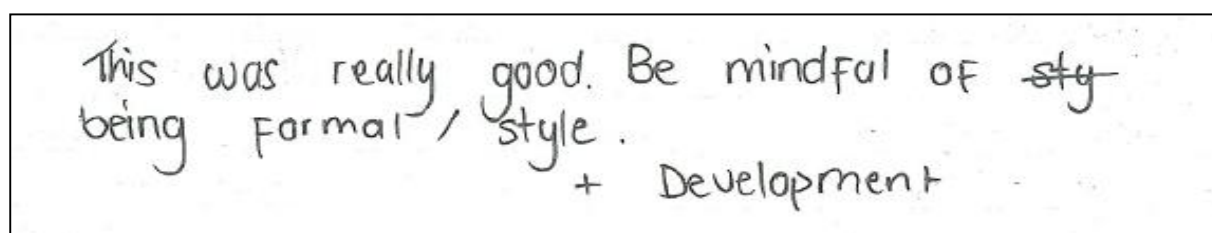 This was really good. Be mindful of sty
being formal / style.
+ Development